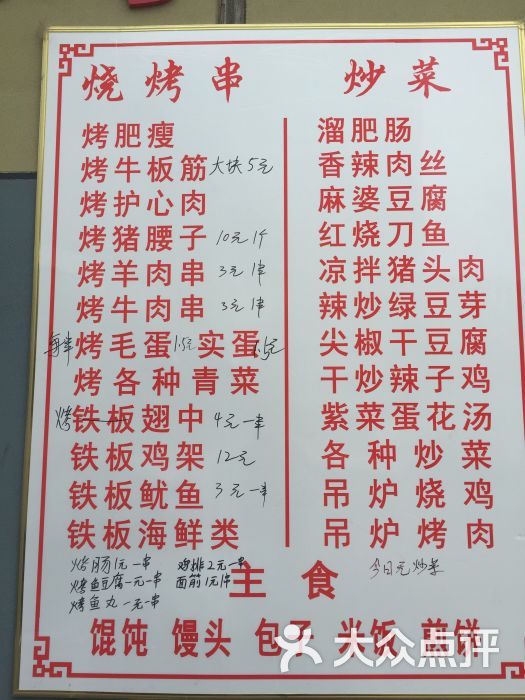 烧烤串
烤肥瘦
烤牛板筋 大块5元
烤护心肉
烤猪腰子 10元1个
烤羊肉串 3元1串
烤牛肉串 3元1串
每串 烤毛蛋 1.5元 实蛋 1.5元
烤各种青菜
烤 铁板翅中 4元一串
铁板鸡架 12元
铁板鱿鱼 3元一串
铁板海鲜类
炒菜
溜肥肠
香辣肉丝
麻婆豆腐
红烧刀鱼
凉拌猪头肉
辣炒绿豆芽
尖椒干豆腐
干炒辣子鸡
紫菜蛋花汤
各种炒菜
吊炉烧鸡
吊炉烤肉
烤肠1元一串 鸡排2元一串
烤鱼豆腐一元一串 面筋1元1串
烤鱼丸一元一串
今日元炒菜
主食
馄饨 馒头 包子 米饭 蒸饺
大众点评